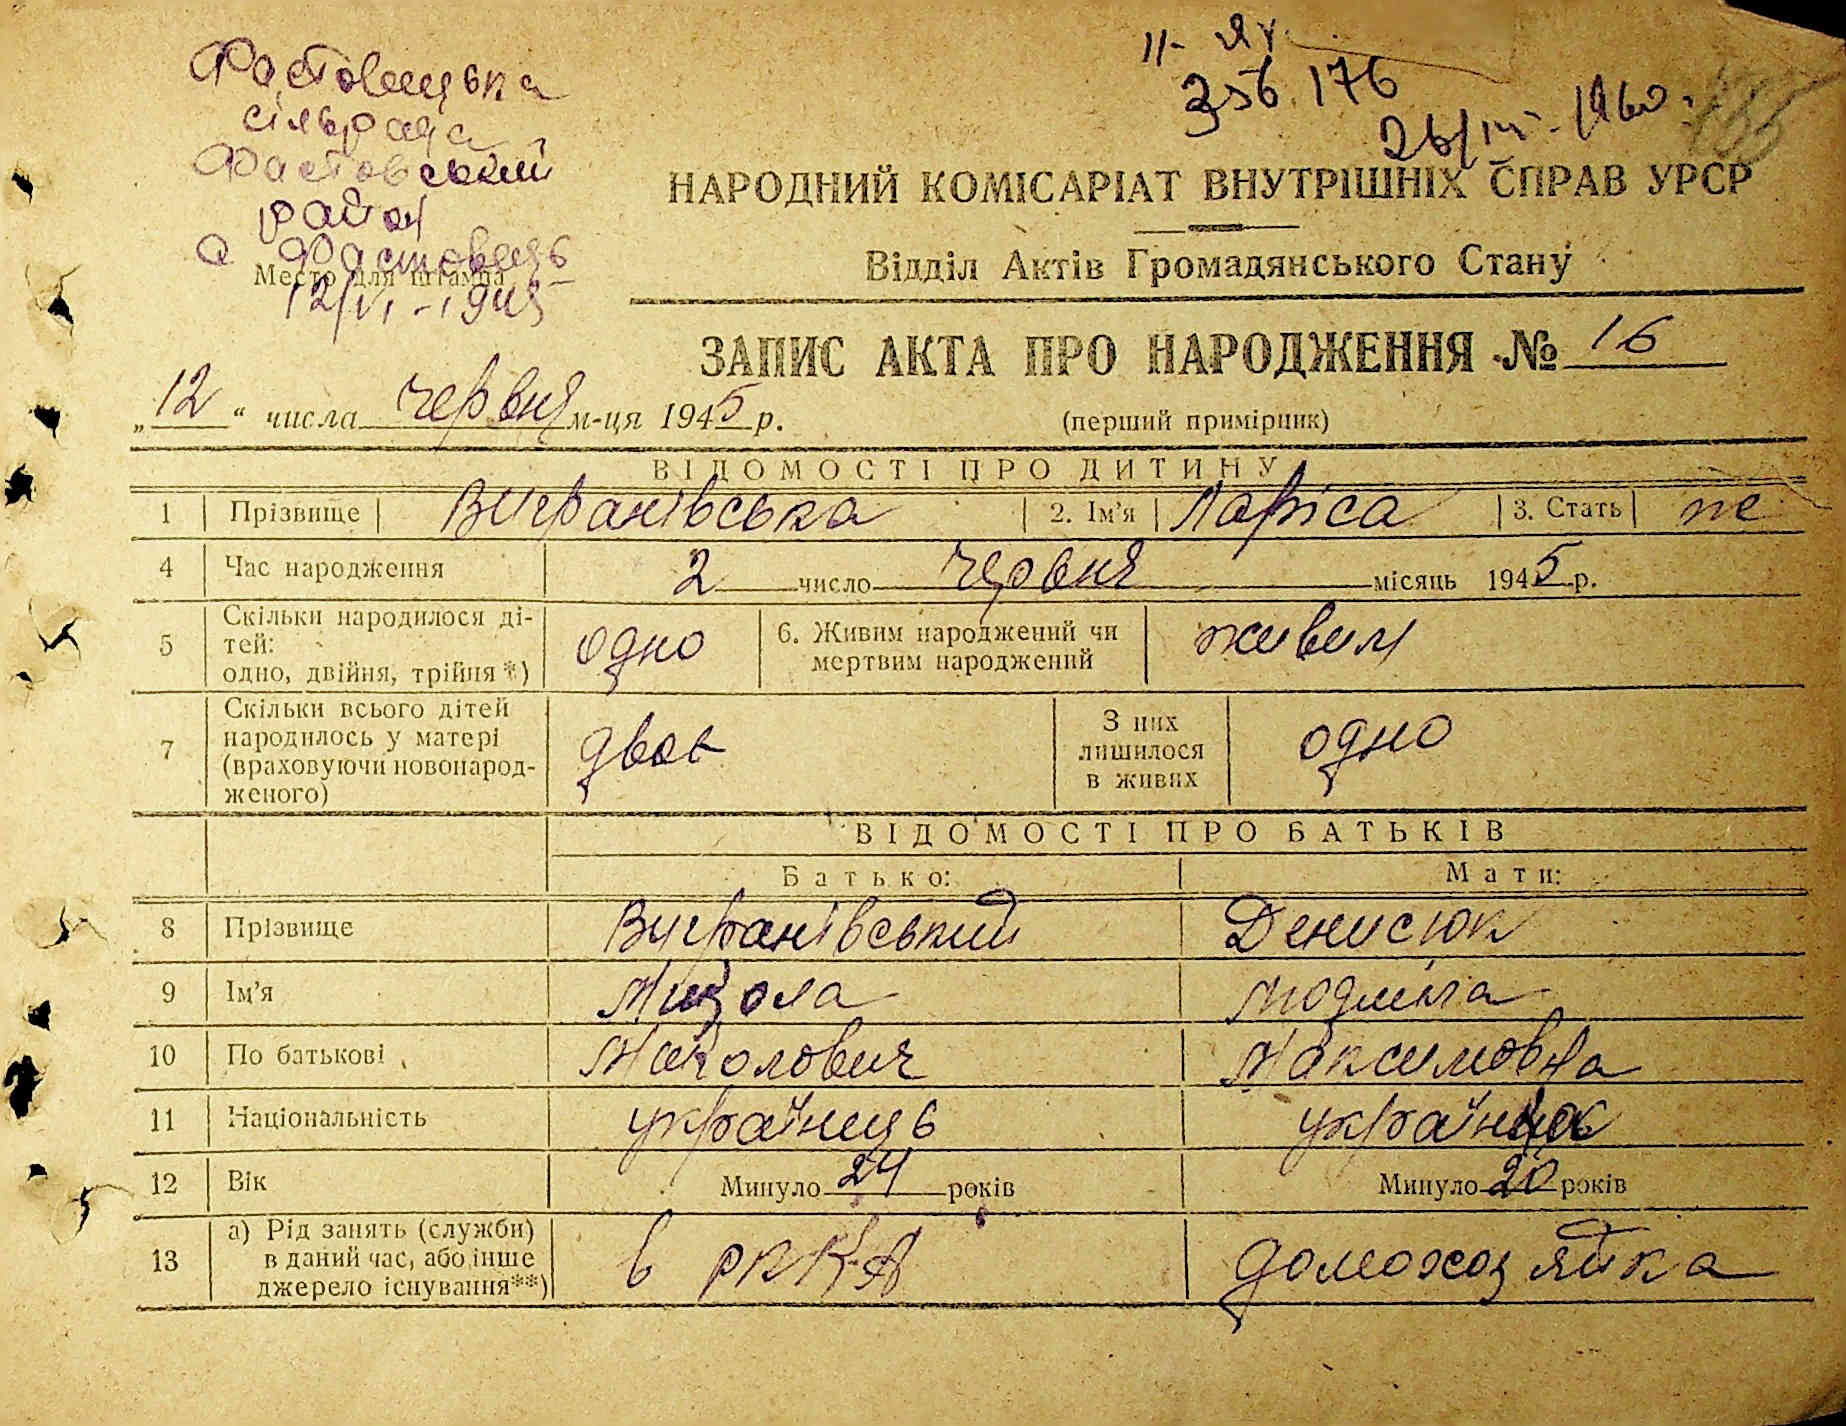 Фастовецька
сільрада
Фастовский
район
с Фастовець
Место для штампа
12/VI - 1945
II-ЯХ
356176
26/III - 1960.
НАРОДНИЙ КОМІСАРІАТ ВНУТРІШНІХ СПРАВ УРСР
Відділ Актів Громадянського Стану
ЗАПИС АКТА ПРО НАРОДЖЕННЯ № 16
„12“ числа червня м-ця 1945 р. (перший примірник)
ВІДОМОСТІ ПРО ДИТИНУ
1 Прізвище Вигранівська 2. Ім’я Ларіса 3. Стать же
4 Час народження 2 число червня місяць 1945 р.
5 Скільки народилося ді-
тей:
одно, двійня, трійня*) одно 6. Живим народжений чи
мертвим народжений живим
7 Скільки всього дітей
народилось у матері
(враховуючи новонарод-
женого) двоє З них
лишилося
в живих одно
ВІДОМОСТІ ПРО БАТЬКІВ
Батько: Мати:
8 Прізвище Вигранівський Денисюк
9 Ім’я Микола Людмила
10 По батькові Николович Максимовна
11 Національність українець українка
12 Вік Минуло 24 років Минуло 20 років
13 а) Рід занять (служби)
в даний час, або інше
джерело існування**) в РККА домохозяйка